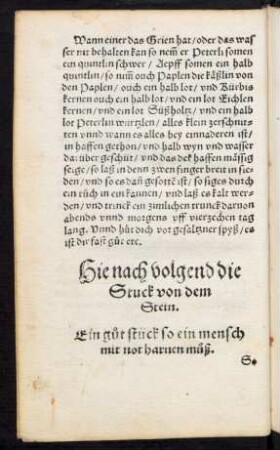 Wann einer das Grien hat/oder das was
ser nit behalten kan so nem̃ er Peterli somen
ein quintlin schwer/ Aepff somen ein halb
quintlin/ so nim̃ ouch Paplen die käßlin von
den Paplen/ ouch ein halb lot/ vnd Kürbis
kernen ouch ein halb lot/ vnd ein lot Eichlen
kernen/ vnd ein lot Süßholtz/ vnd ein halb
lot Peterlin wurtzlen/ alles klein zerschnit-
ten vnnd wann es alles bey einnaderen ist/
in haffen gethon/ vnd halb wyn vnd wasser
daruͤber geschüt/ vnd das dek haffen mässig
seige/ so laß in denn zwen finger breit in sie-
den/ vnd so es dañ gesotte ist/ so siges durch
ein rüch in ein kannen/ vnd laß es kalt wer-
den/ vnd trinck ein zimlichen trunck daruon
abends vnnd morgens vff vierzechen tag
lang. Vnnd hüt dich vor gesaltzner spyß/ es
ist dir fast güt etc.
Hie nach volgend die
Stuck von dem
Stein.
Ein güt stück so ein mensch
mit not harnen müß.